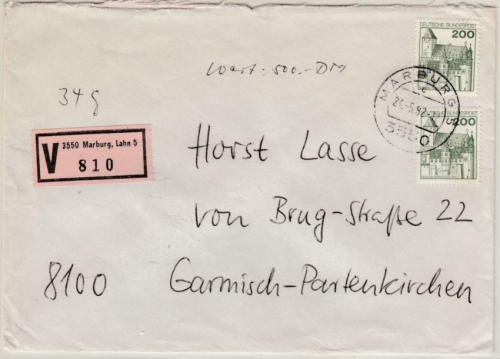 DEUTSCHE BUNDESPOST
200
Wert: 500.- DM
34 g
MARBURG 5
24.-5.82
3550
DEUTSCHE BUNDESPOST
200
V 3550 Marburg, Lahn 5
810
Horst Lasse
von Brug-Straße 22
8100 Garmisch-Partenkirchen